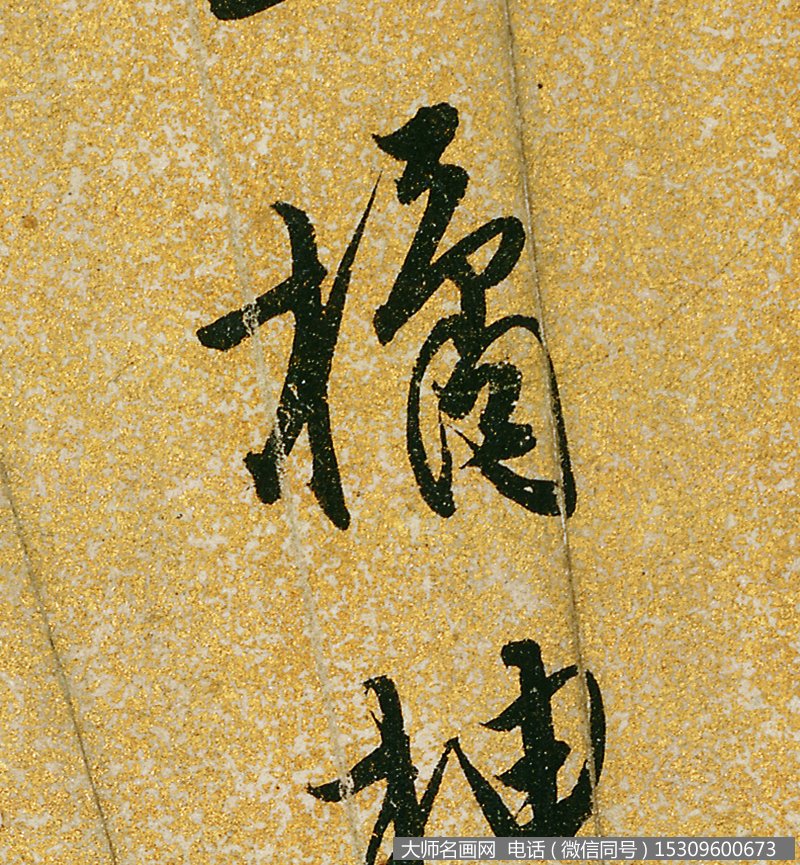 橘
柚
大师名画网 电话（微信同号）15309600673